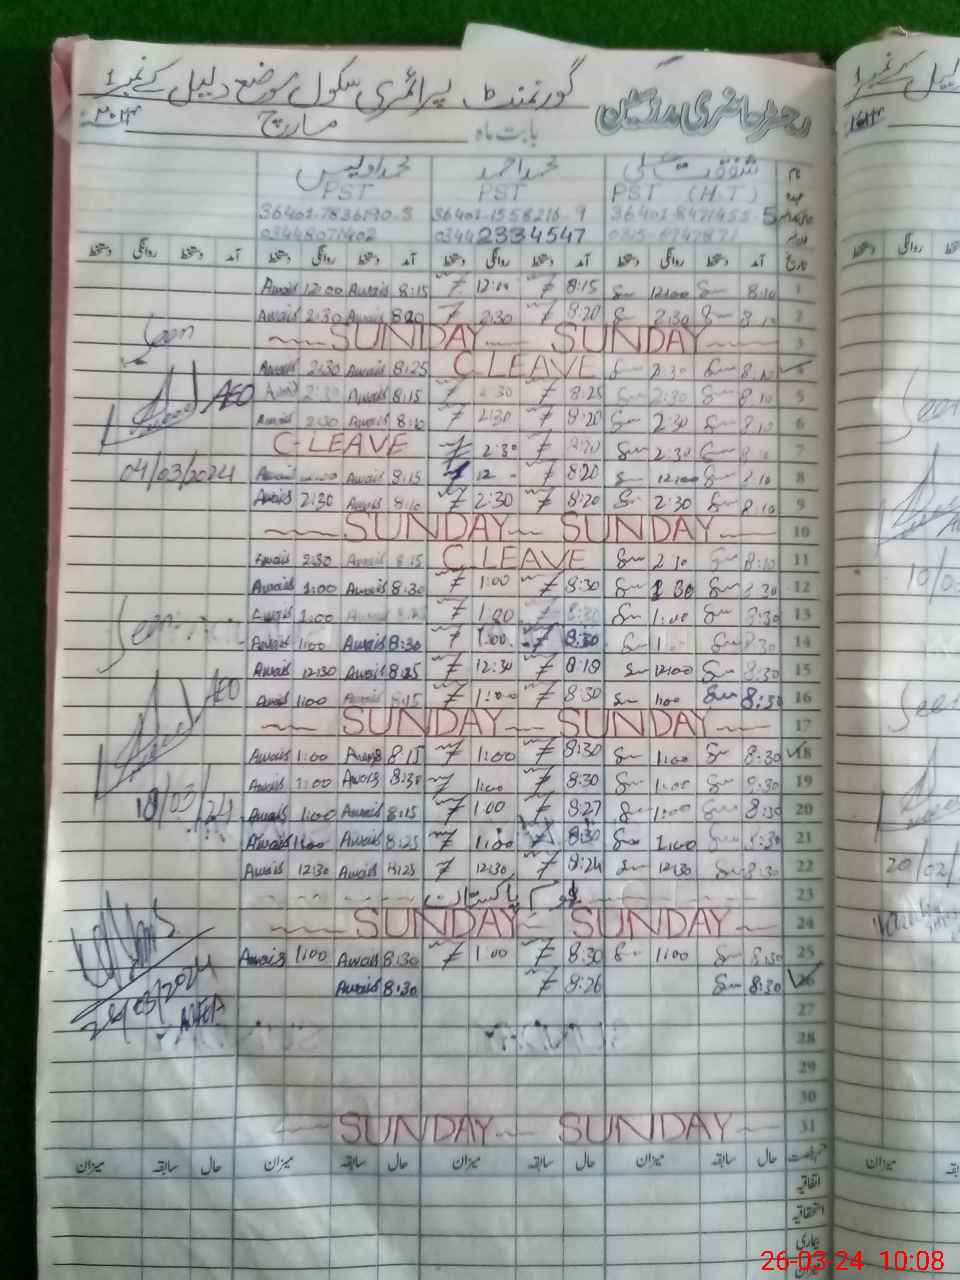 گورنمنٹ پرائمری سکول موضع دلیل کے نمبر 1
رجسٹر حاضری مدرسین
بابت ماہ مارچ ۲۰۲۴
نام شفقت علی محمد احمد محمد اویس
PST (H.T) PST PST
36401-8471455-5 36401-1558216-9 36401-7836190-3
03442334547 03448071402
تاریخ آمد دستخط روانگی دستخط آمد دستخط روانگی دستخط آمد دستخط روانگی دستخط آمد دستخط روانگی دستخط
Awais 12:00 Awais 8:15 12:00 8:15 12:00 8:10 1
Awais 2:30 Awais 8:20 2:30 8:20 2:30 8:10 2
SUNDAY SUNDAY 3
Seen
Awais 2:30 Awais 8:25 C LEAVE 2:30 8:10 4
Awais 2:30 Awais 8:15 2:30 8:25 2:30 8:10 5
AEO
Awais 2:30 Awais 8:10 2:30 8:20 2:30 8:10 6
C-LEAVE 2:30 8:20 2:30 8:10 7
04/03/2024
Awais 12:00 Awais 8:15 12 8:20 12:00 8:10 8
Awais 2:30 Awais 8:10 2:30 8:20 2:30 8:10 9
SUNDAY SUNDAY 10
Awais 2:30 Awais 8:15 C LEAVE 2:30 8:10 11
Awais 1:00 Awais 8:30 1:00 8:30 1:30 8:30 12
Awais 1:00 Awais 1:00 8:30 1:00 8:30 13
Seen
Awais 1:00 Awais 8:30 1:00 8:30 1:00 8:30 14
Awais 12:30 Awais 8:25 12:30 8:18 12:00 8:30 15
AEO
Awais 1:00 Awais 8:15 1:00 8:30 1:00 8:30 16
SUNDAY SUNDAY 17
Awais 1:00 Awais 8:15 1:00 8:30 1:00 8:30 18
Awais 1:00 Awais 8:30 1:00 8:30 1:00 8:30 19
18/03/24
Awais 1:00 Awais 8:15 1:00 8:27 1:00 8:30 20
Awais 1:00 Awais 8:25 1:00 8:30 1:00 8:30 21
Awais 12:30 Awais 8:25 12:30 8:24 12:30 8:30 22
یوم پاکستان 23
SUNDAY SUNDAY 24
Awais 1:00 Awais 8:30 1:00 8:30 1:00 8:30 25
Awais 8:30 8:26 8:30 26
26/03/2024
27
28
29
30
SUNDAY SUNDAY 31
قسم رخصت حال سابقہ میزان حال سابقہ میزان حال سابقہ میزان حال سابقہ میزان
اتفاقیہ
استحقاقیہ
بیماری
میزان
Seen
10/0
Seen
20/02/
26-03-24 10:08